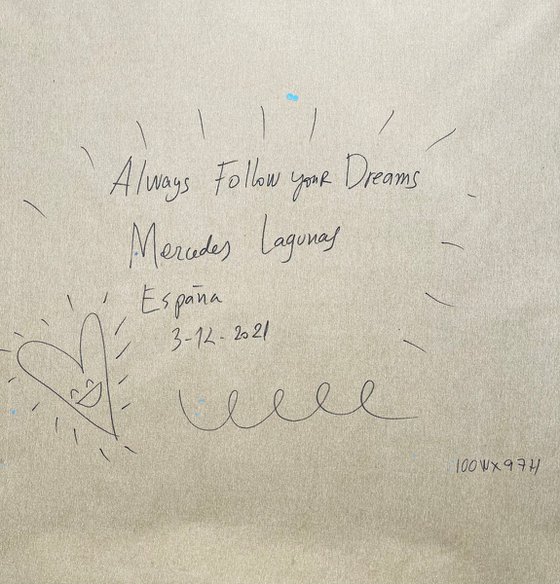 Always Follow your Dreams
Mercedes Lagunas
España
3-12-2021
100WX97H